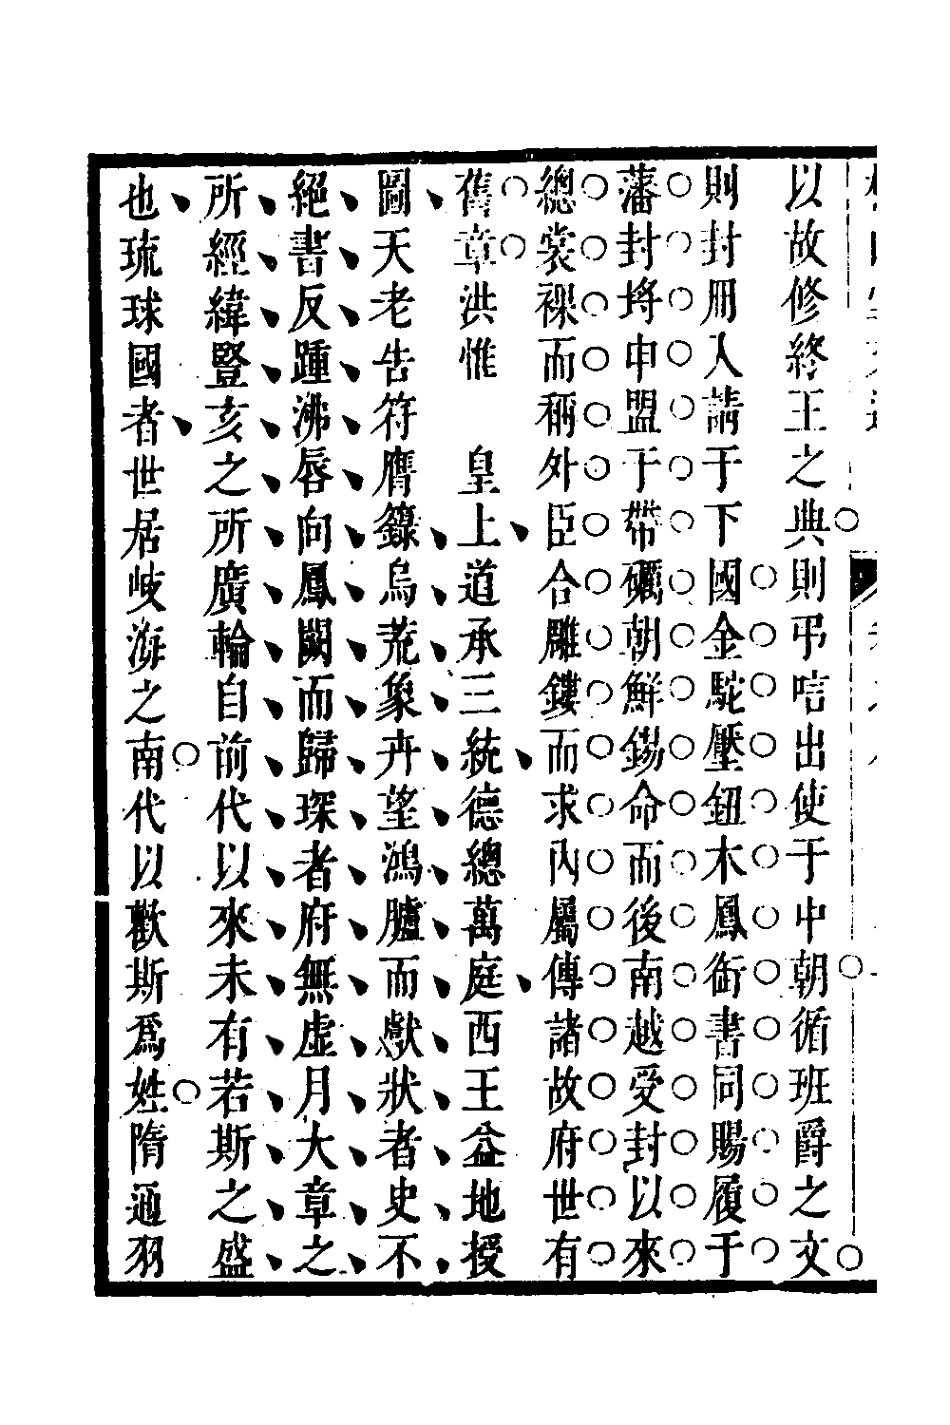 以故修終王之典則弔唁出使于中朝循班爵之文
則封冊入請于下國金駝壓鈕木鳳銜書同賜履于
藩封埓申盟于帶礪朝鮮錫命而後南越受封以來
總裳裸而稱外臣合雕鏤而求內屬傳諸故府世有
舊章洪惟　皇上道承三統德總萬庭西王益地授
圖天老告符膺籙烏荒象卉望鴻臚而獻狀者史不
絕書反踵沸唇向鳳闕而歸琛者府無虛月大章之
所經緯豎亥之所廣輪自前代以來未有若斯之盛
也琉球國者世居岐海之南代以歡斯爲姓隋通羽